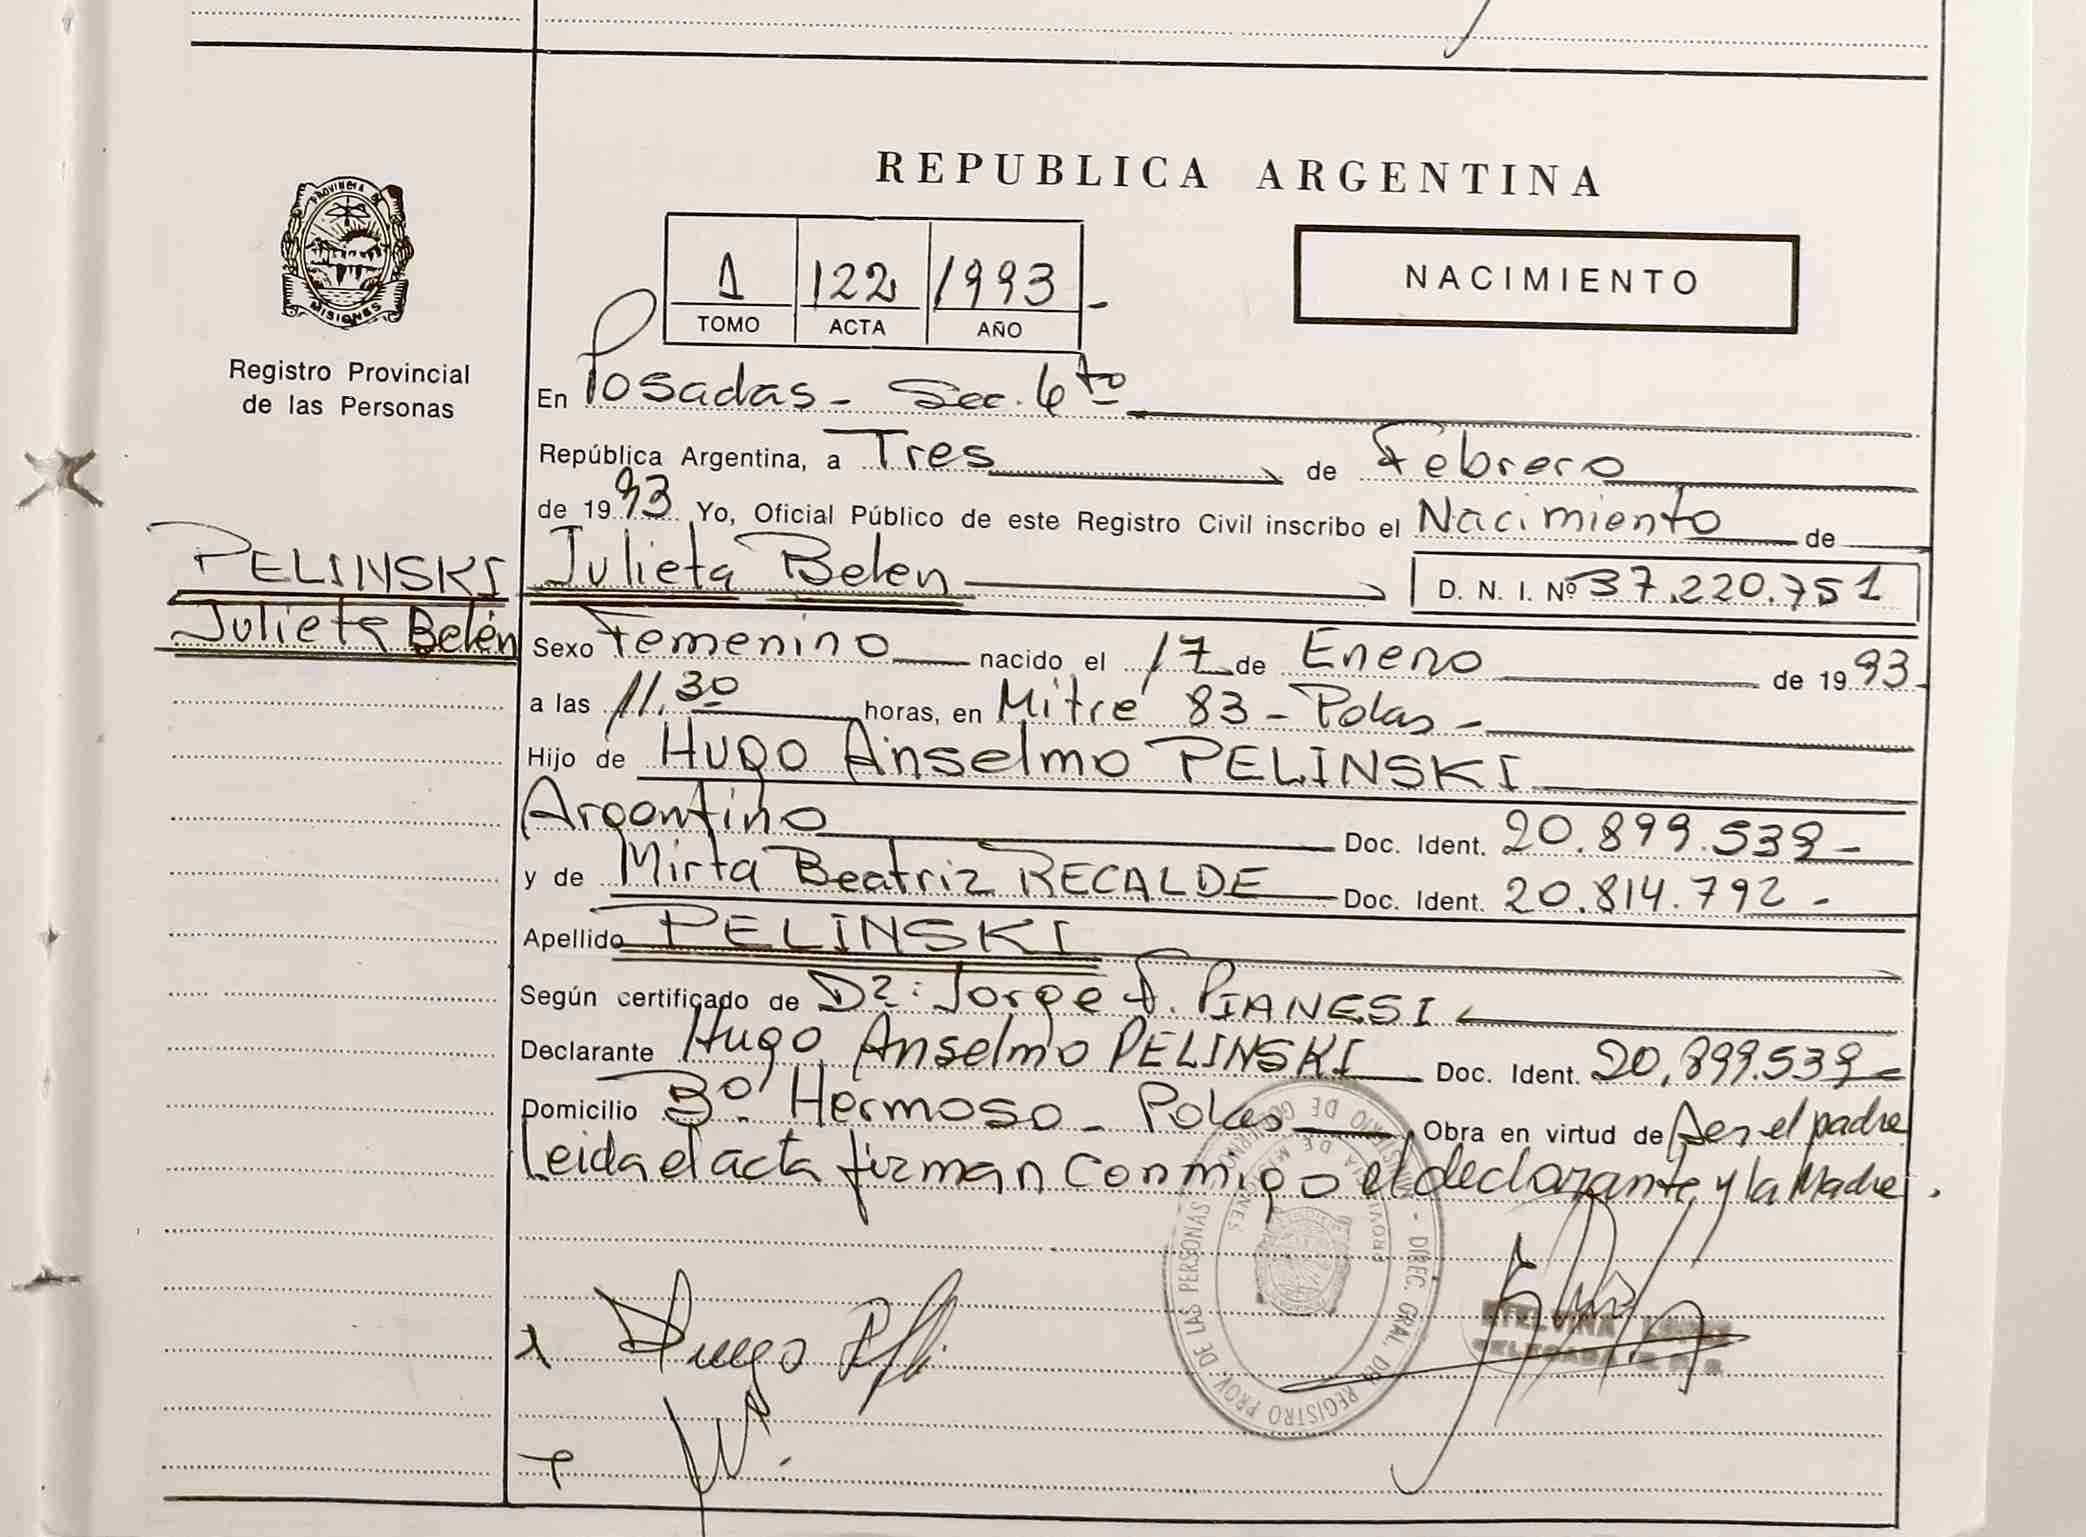 REPUBLICA ARGENTINA
PROVINCIA DE MISIONES
Registro Provincial
de las Personas
1 122 1993
TOMO ACTA AÑO
NACIMIENTO
En Posadas - Sec. 6to
República Argentina, a Tres de Febrero
de 1993 Yo, Oficial Público de este Registro Civil inscribo el Nacimiento de
PELINSKI
Julieta Belén
Julieta Belen D. N. I. Nº 37.220.751
Sexo Femenino nacido el 17 de Enero de 1993
a las 11.30 horas, en Mitre 83 - Pdas -
Hijo de Hugo Anselmo PELINSKI
Argentino Doc. Ident. 20.899.539 -
y de Mirta Beatriz RECALDE Doc. Ident. 20.814.792 -
Apellido PELINSKI
Según certificado de Dr: Jorge F. PIANESI
Declarante Hugo Anselmo PELINSKI Doc. Ident. 20.899.539 -
Domicilio Bº Hermoso - Pdas Obra en virtud de Ser el padre
Leida el acta firman conmigo el declarante y la Madre.
MINISTERIO DE GOBIERNO - DIREC. GRAL. DEL REGISTRO PROV. DE LAS PERSONAS
PROVINCIA DE MISIONES
Hugo
ETELVINA
DELEGADA R. P. P.